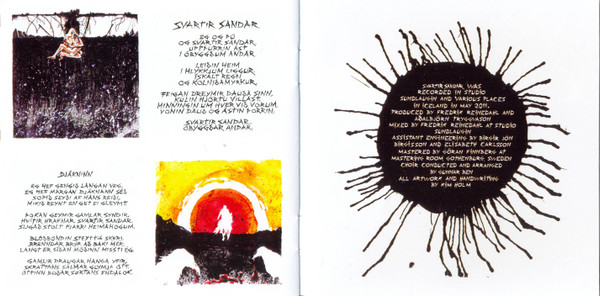 SVARTIR SANDAR
ÉG OG ÞÚ
OG SVARTIR SANDAR,
UPPÞURRIN ÁST
Í ÓBYGGÐUM ANDAR.
LEIÐIN HEIM
Í HLYKKJUM LIGGUR,
ÍSKALT REGN
OG KOLNIÐAMYRKUR.
FEIGAN DREYMIR DAUÐA SINN,
KULIN HJÖRTU VILLAST.
MINNINGIN UM HVER VIÐ VORUM,
VONIN DAUÐ OG ÁSTIN ÞORRIN.
SVARTIR SANDAR,
ÓBYGGÐAR ANDAR.
DJÁKNINN
ÉG HEF GENGIÐ LANGAN VEG,
ÉG HEF MARGAN DJÁKNANN SÉÐ
SOPIÐ SEYÐI AF HANS REIÐI,
MIKIÐ REYNT EN GET EI GLEYMT.
GAMLAR SYNDIR,
HVÍTIR HRAFNAR, SVARTIR SANDAR,
STOLT FJARRI HEIMAHÖGUM.
BLÓÐBÖNDIN
BRENNDAR BRÝR AÐ BAKI MÉR
LANGT ER SÍÐAN MÓÐINN MISSTI ÉG.
GAMLIR DRAUGAR HANGA YFIR,
SKRATTANS SÁLMAR GLYMJA OFT,
OPINN
SVARTIR SANDAR WAS
RECORDED IN STUDIO
SUNDLAUGIN AND VARIOUS PLACES
IN ICELAND IN MAY 2011.
PRODUCED BY FREDRIK REINEDAHL AND
AÐALBJÖRN TRYGGVASON
MIXED BY FREDRIK REINEDAHL AT STUDIO
SUNDLAUGIN
ASSISTANT ENGINEERING BY BIRGIR JÓN
BIRGISSON AND ELISABETH CARLSSON
MASTERED BY GÖRAN FINNBERG AT
MASTERING ROOM GOTHENBURG SWEDEN
CHOIR CONDUCTED AND ARRANGED
BY
GUNNAR BEN
ALL ARTWORK AND HANDWRITING
BY KIM HOLM